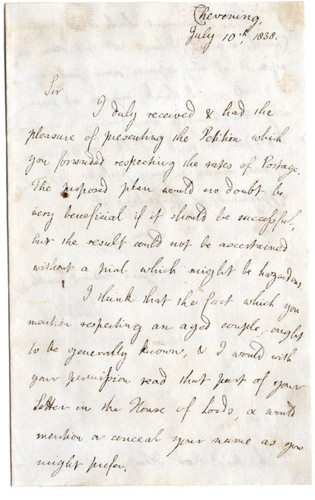 Chevening,
July 10th. 1838.
Sir
I duly received & had the
pleasure of presenting the Petition which
you forwarded respecting the rates of Postage.
The proposed plan would no doubt be
very beneficial if it should be successful,
but the result could not be ascertained
without a trial which might be hazardous.
I think that the fact which you
mention respecting an aged couple, ought
to be generally known, & I would with
your permission read that part of your
letter in the House of Lords, & would
mention or conceal your name as you
might prefer.